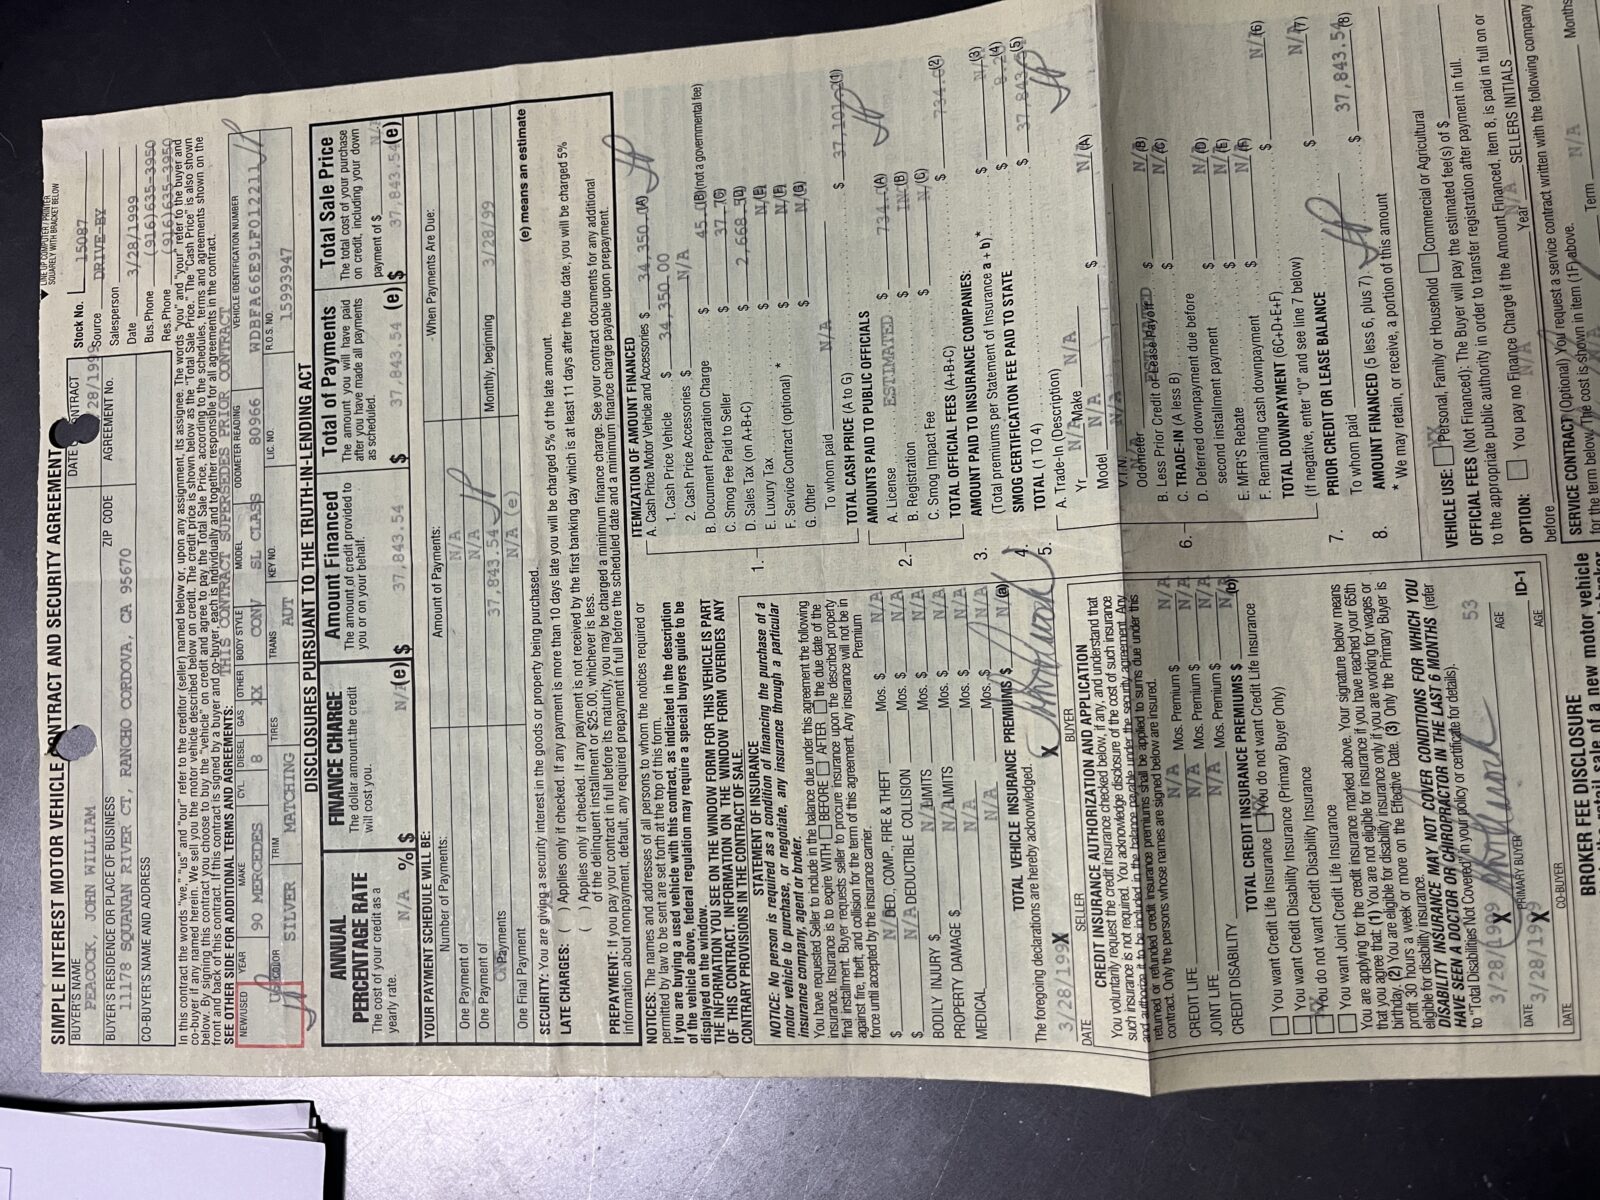 LINE UP COMPUTER/PRINTER
SQUARELY WITH BRACKET BELOW
SIMPLE INTEREST MOTOR VEHICLE CONTRACT AND SECURITY AGREEMENT
Stock No. 15087
Source DRIVE-BY
Salesperson
Date 3/28/1999
Bus.Phone (916)635-3950
Res.Phone (916)635-3950
BUYER'S NAME
PEACOCK, JOHN WILLIAM
DATE CONTRACT
28/1999
BUYER'S RESIDENCE OR PLACE OF BUSINESS ZIP CODE AGREEMENT No.
11178 SQUANAN RIVER CT, RANCHO CORDOVA, CA 95670
CO-BUYER'S NAME AND ADDRESS
In this contract the words "we," "us" and "our" refer to the creditor (seller) named below or, upon any assignment, its assignee. The words "you" and "your" refer to the buyer and
co-buyer if any named herein. We sell you the motor vehicle described below on credit. The credit price is shown below as the "Total Sale Price." The "Cash Price" is also shown
below. By signing this contract you choose to buy the "vehicle" on credit and agree to pay the Total Sale Price, according to the schedules, terms and agreements shown on the
front and back of this contract. If this contract is signed by a buyer and co-buyer, each is individually and together responsible for all agreements in the contract.
SEE OTHER SIDE FOR ADDITIONAL TERMS AND AGREEMENTS: THIS CONTRACT SUPERSEDES PRIOR CONTRACT
NEW/USED YEAR MAKE CYL DIESEL GAS OTHER BODY STYLE MODEL ODOMETER READING VEHICLE IDENTIFICATION NUMBER
90 MERCEDES 8 XX CONV SL CLASS 80966 WDBFA66E9LF012211 JP
COLOR TRIM TIRES TRANS KEY NO. LIC. NO. R.O.S. NO.
SILVER MATCHING AUT 15993947
JP
DISCLOSURES PURSUANT TO THE TRUTH-IN-LENDING ACT
ANNUAL PERCENTAGE RATE
The cost of your credit as a yearly rate.
N/A %
FINANCE CHARGE
The dollar amount the credit will cost you.
$ N/A (e)
Amount Financed
The amount of credit provided to you or on your behalf.
$ 37,843.54
Total of Payments
The amount you will have paid after you have made all payments as scheduled.
$ 37,843.54 (e)
Total Sale Price
The total cost of your purchase on credit, including your down payment of $ N/A
$ 37,843.54 (e)
YOUR PAYMENT SCHEDULE WILL BE:
Number of Payments: Amount of Payments: When Payments Are Due:
One Payment of N/A
One Payment of N/A
ONE Payments 37,843.54 JP Monthly, beginning 3/28/99
One Final Payment N/A (e)
(e) means an estimate
SECURITY: You are giving a security interest in the goods or property being purchased.
LATE CHARGES: ( ) Applies only if checked. If any payment is more than 10 days late you will be charged 5% of the late amount.
( ) Applies only if checked. If any payment is not received by the first banking day which is at least 11 days after the due date, you will be charged 5%
of the delinquent installment or $25.00, whichever is less.
PREPAYMENT: If you pay your contract in full before its maturity, you may be charged a minimum finance charge. See your contract documents for any additional
information about nonpayment, default, any required prepayment in full before the scheduled date and a minimum finance charge payable upon prepayment.
NOTICES: The names and addresses of all persons to whom the notices required or
permitted by law to be sent are set forth at the top of this form.
If you are buying a used vehicle with this contract, as indicated in the description
of the vehicle above, federal regulation may require a special buyers guide to be
displayed on the window.
THE INFORMATION YOU SEE ON THE WINDOW FORM FOR THIS VEHICLE IS PART
OF THIS CONTRACT. INFORMATION ON THE WINDOW FORM OVERRIDES ANY
CONTRARY PROVISIONS IN THE CONTRACT OF SALE.
STATEMENT OF INSURANCE
NOTICE: No person is required as a condition of financing the purchase of a
motor vehicle to purchase, or negotiate, any insurance through a particular
insurance company, agent or broker.
You have requested Seller to include in the balance due under this agreement the following
insurance. Insurance is to expire WITH BEFORE AFTER the due date of the
final installment. Buyer requests seller to procure insurance upon the described property
against fire, theft, and collision for the term of this agreement. Any insurance will not be in
force until accepted by the insurance carrier. Premium
$ N/A DED. COMP., FIRE & THEFT Mos. $ N/A
$ N/A DEDUCTIBLE COLLISION Mos. $ N/A
BODILY INJURY $ N/A LIMITS Mos. $ N/A
PROPERTY DAMAGE $ N/A LIMITS Mos. $ N/A
MEDICAL N/A Mos. $ N/A
TOTAL VEHICLE INSURANCE PREMIUMS $ N/A (a)
The foregoing declarations are hereby acknowledged.
3/28/1999 X X
DATE SELLER BUYER
CREDIT INSURANCE AUTHORIZATION AND APPLICATION
You voluntarily request the credit insurance checked below, if any, and understand that
such insurance is not required. You acknowledge disclosure of the cost of such insurance
and authorize it to be included in the balance payable under the security agreement. Any
returned or refunded credit insurance premiums shall be applied to sums due under this
contract. Only the persons whose names are signed below are insured.
CREDIT LIFE N/A Mos. Premium $ N/A
JOINT LIFE N/A Mos. Premium $ N/A
CREDIT DISABILITY N/A Mos. Premium $ N/A
TOTAL CREDIT INSURANCE PREMIUMS $ N/A (b)
You want Credit Life Insurance XX You do not want Credit Life Insurance
You want Credit Disability Insurance (Primary Buyer Only)
XX You do not want Credit Disability Insurance
You want Joint Credit Life Insurance
You are applying for the credit insurance marked above. Your signature below means
that you agree that: (1) You are not eligible for insurance if you have reached your 66th
birthday. (2) You are eligible for disability insurance only if you are working for wages or
profit 30 hours a week or more on the Effective Date. (3) Only the Primary Buyer is
eligible for disability insurance.
DISABILITY INSURANCE MAY NOT COVER CONDITIONS FOR WHICH YOU
HAVE SEEN A DOCTOR OR CHIROPRACTOR IN THE LAST 6 MONTHS (refer
to "Total Disabilities Not Covered" in your policy or certificate for details).
3/28/1999 X 53
DATE PRIMARY BUYER AGE
3/28/1999 X
DATE CO-BUYER AGE
ID-1
BROKER FEE DISCLOSURE
ITEMIZATION OF AMOUNT FINANCED
1. A. Cash Price Motor Vehicle and Accessories $ 34,350.00 (A) JP
1. Cash Price Vehicle $ 34,350.00
2. Cash Price Accessories $ N/A
B. Document Preparation Charge $ 45. (B) (not a governmental fee)
C. Smog Fee Paid to Seller $ 37.70 (C)
D. Sales Tax (on A+B+C) $ 2,668. (D)
E. Luxury Tax $ N/A (E)
F. Service Contract (optional) * $ N/A (F)
G. Other $ N/A (G)
To whom paid N/A
TOTAL CASH PRICE (A to G) $ 37,101. (1) JP
2. AMOUNTS PAID TO PUBLIC OFFICIALS
A. License ESTIMATED $ 734. (A)
B. Registration $ INC (B)
C. Smog Impact Fee $ N/A (C)
TOTAL OFFICIAL FEES (A+B+C) $ 734. (2)
3. AMOUNT PAID TO INSURANCE COMPANIES:
(Total premiums per Statement of Insurance a + b) * $ N/A (3)
4. SMOG CERTIFICATION FEE PAID TO STATE $ 8. (4)
5. TOTAL (1 TO 4) $ 37,843. (5) JP
6. A. Trade-In (Description) $ N/A (A)
Yr N/A Make N/A
Model N/A
V.I.N. N/A
Odometer N/A
B. Less Prior Credit or Lease Payoff ESTIMATED $ N/A (B)
C. TRADE-IN (A less B) $ N/A (C)
D. Deferred downpayment due before
second installment payment $ N/A (D)
E. MFR'S Rebate $ N/A (E)
F. Remaining cash downpayment $ N/A (F)
TOTAL DOWNPAYMENT (6C+D+E+F) $ N/A (6)
(If negative, enter "0" and see line 7 below)
7. PRIOR CREDIT OR LEASE BALANCE $ N/A (7)
To whom paid
8. AMOUNT FINANCED (5 less 6, plus 7) JP $ 37,843.54 (8)
* We may retain, or receive, a portion of this amount
VEHICLE USE: XX Personal, Family or Household Commercial or Agricultural
OFFICIAL FEES (Not Financed): The Buyer will pay the estimated fee(s) of $
to the appropriate public authority in order to transfer registration after payment in full.
OPTION: You pay no Finance Charge if the Amount Financed, item 8, is paid in full on or
before N/A Year N/A SELLERS INITIALS
SERVICE CONTRACT (Optional) You request a service contract written with the following company
for the term below. The cost is shown in item (1F) above.
Term N/A Months